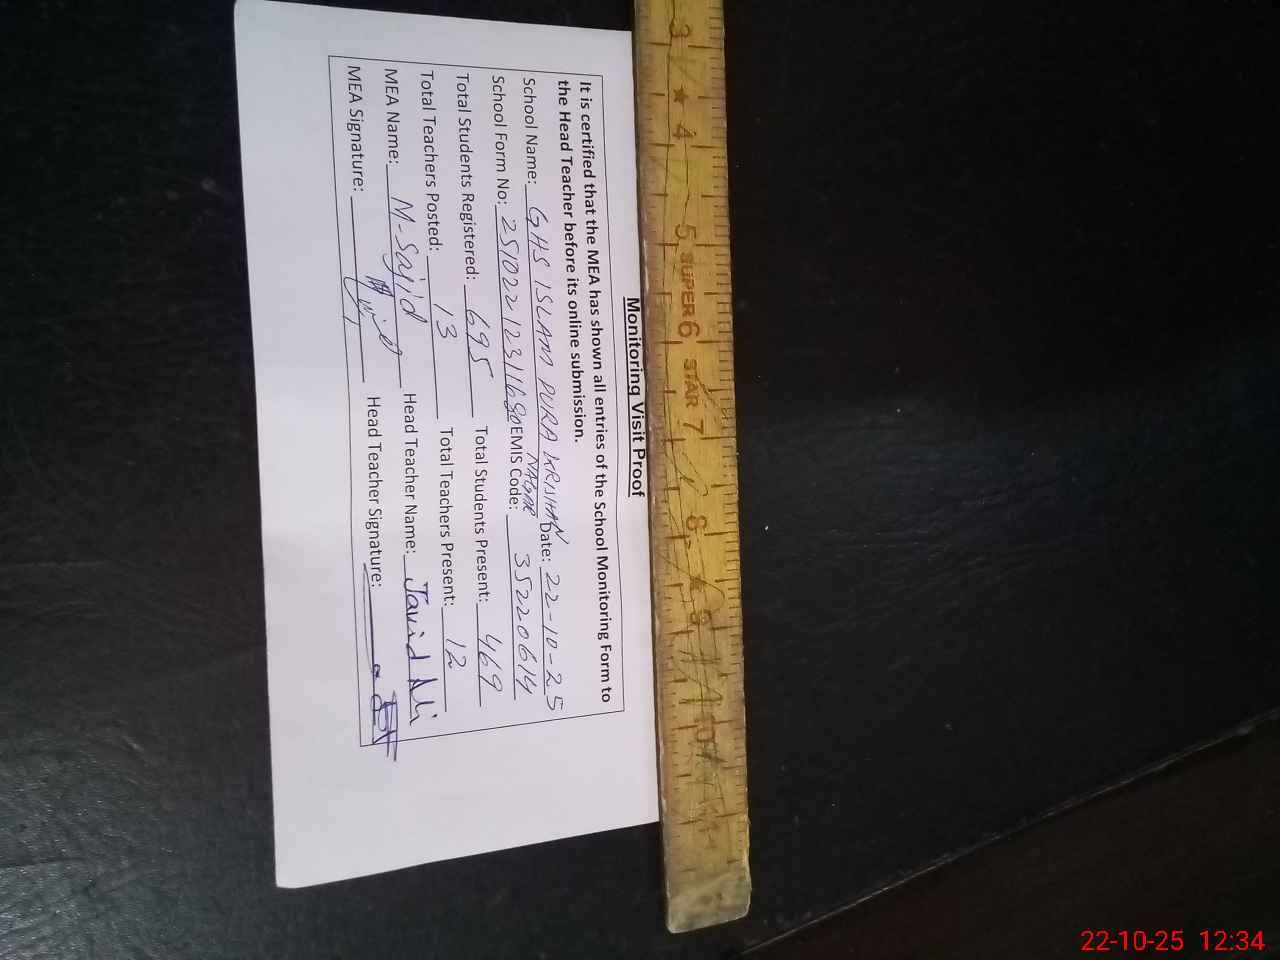 3 4 5 SUPER 6 STAR 7 8 9 10
Monitoring Visit Proof
It is certified that the MEA has shown all entries of the School Monitoring Form to
the Head Teacher before its online submission.
School Name: GHS ISLAM PURA KRISHAN NAGAR Date: 22-10-25
School Form No: EMIS Code: 35220614
Total Students Registered: 695 Total Students Present: 469
Total Teachers Posted: 13 Total Teachers Present: 12
MEA Name: M-Sajid Head Teacher Name: Javid Ali
MEA Signature: Head Teacher Signature:
22-10-25 12:34